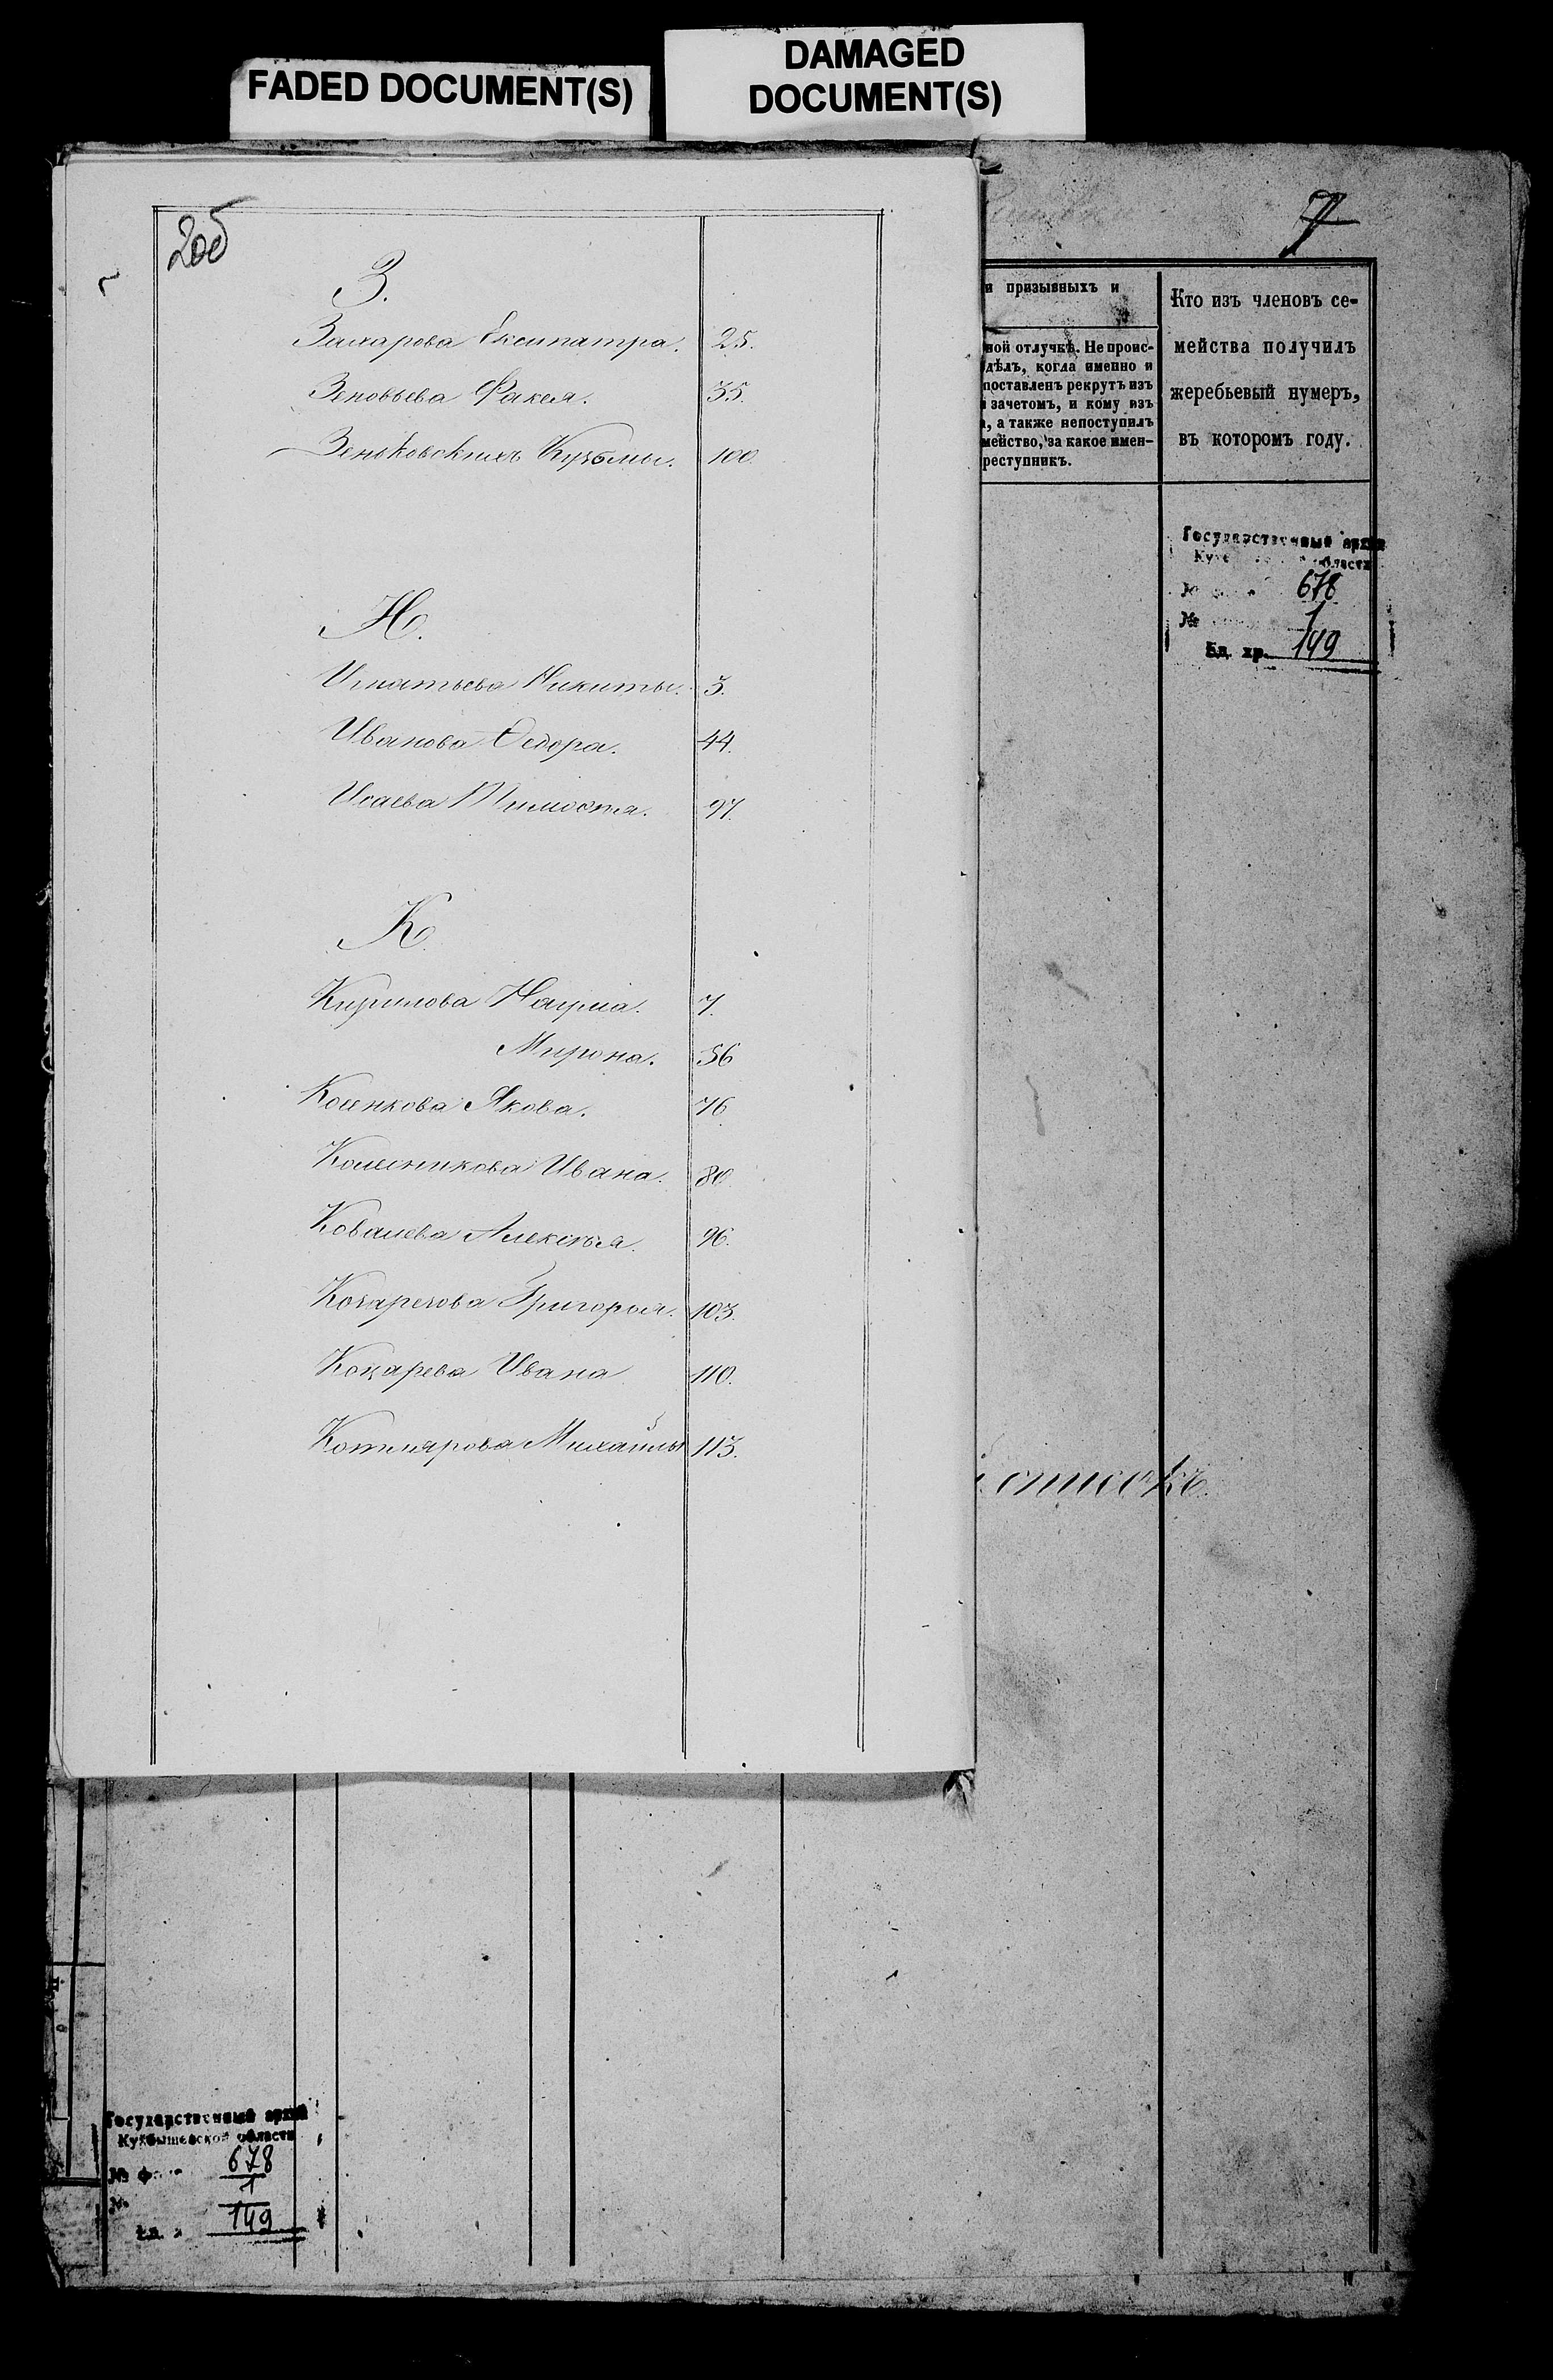 FADED DOCUMENT(S)
DAMAGED
DOCUMENT(S)
2об
З.
Захарова Ексипатра. 25.
Зеновьева Факея. 35.
Зеньковскихъ Кузьмы. 100.
И.
Игнатьева Никиты. 3.
Иванова Федора. 44.
Исаева Тимофея. 97.
К.
Кирилова Наума. 7.
Мирона. 56
Коленкова Якова. 76.
Колесникова Ивана. 80.
Ковалева Алексѣя. 96.
Григорья. 103.
Ивана 110.
Котлярова Михайлы 113.
7
и призывныхъ и
ной отлучкѣ. Не проис-
дѣлъ, когда именно и
поставленъ рекрутъ изъ
зачетомъ, и кому изъ
, а также непоступилъ
мейство, за какое имен-
реступникъ.
Кто изъ членовъ се-
мейства получилъ
жеребьевый нумеръ,
въ которомъ году.
Государственный архив
области
678
№ 1
Ед. хр. 149
списокъ.
Государственный архив
Куйбышевской области
№ ф. 678
№ 1
Ед. 149